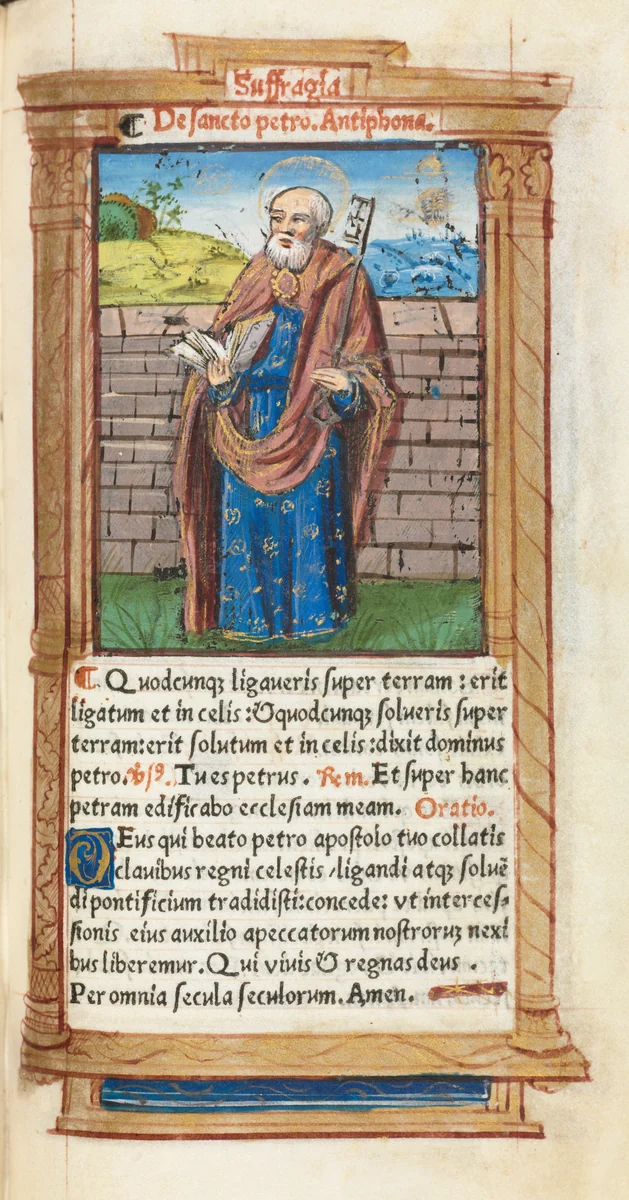 Suffragia
¶ De sancto petro. Antiphona.
¶ Quodcunqꝫ ligaveris super terram : erit
ligatum et in celis : & quodcunqꝫ solveris super
terram: erit solutum et in celis : dixit dominus
petro. ꝟsꝰ. Tu es petrus . Rem. Et super hanc
petram edificabo ecclesiam meam. Oratio.
DEus qui beato petro apostolo tuo collatis
clavibus regni celestis / ligandi atqꝫ solvē
di pontificium tradidisti: concede: vt interces⸗
sionis eius auxilio a peccatorum nostroruꝫ nexi
bus liberemur. Qui vivis & regnas deus .
Per omnia secula seculorum. Amen.